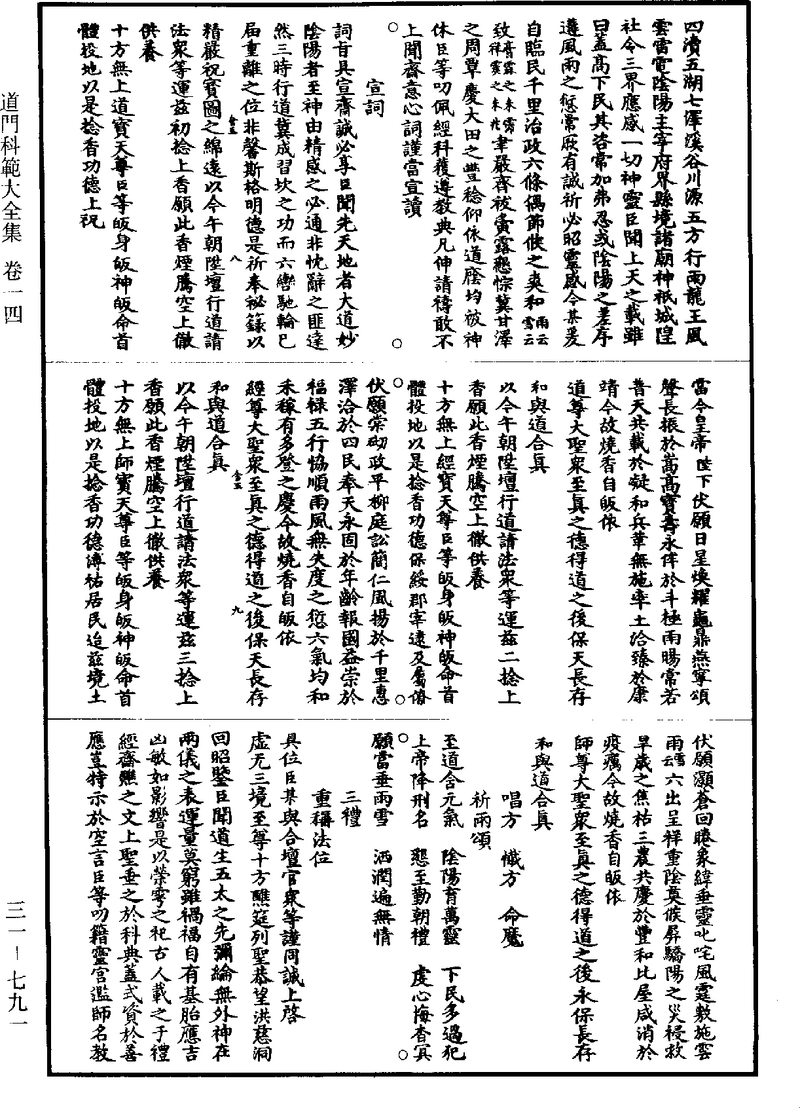 四瀆五湖七澤溪谷川源五方行雨龍王風
雲雷電陰陽主宰府界縣境諸廟神祇城隍
社令三界應感一切神靈臣聞上天之載雖
曰蓋高下民其咨常加弗忍或陰陽之差序
遘風雨之愆常厥有誠祈必昭靈感今某爰
自臨民千里治政六條偶節候之爽和雨云雪云
致膏霖之未霈祥霙之未兆聿嚴齊祓賁露懇悰冀甘澤
之周覃慶大田之豐稔仰依道廕均被神
休臣等叨佩經科獲遵教典凡伸請禱敢不
上聞齋意心詞謹當宣讀
宣詞
詞旨具宣齋誠必享臣聞先天地者大道妙
陰陽者至神由精感之必通非忱辭之匪達
然三時行道冀成習坎之功而六轡馳輪已
屆重離之位非馨斯格明德是祈奉祕籙以
精嚴祝寶圖之綿遠以今午朝陞壇行道請
法衆等運茲初捻上香願此香煙騰空上徹
供養
十方無上道寶天尊臣等皈身皈神皈命首
體投地以是捻香功德上祝
當今皇帝陛下伏願日星煥耀龜鼎燕寧頌
聲長振於嵩高寶壽永侔於斗極雨暘常若
普天共載於凝和兵革無施率土洽臻於康
靖今故燒香自皈依
道尊大聖衆至真之德得道之後保天長存
和與道合真
以今午朝陞壇行道請法衆等運茲二捻上
香願此香煙騰空上徹供養
十方無上經寶天尊臣等皈身皈神皈命首
體投地以是捻香功德保綏郡宰逮及屬僚
伏願棠砌政平柳庭訟簡仁風揚於千里惠
澤洽於四民奉天永固於年齡報國益崇於
福祿五行恊順雨風無失度之愆六氣均和
禾稼有多登之慶今故燒香自皈依
經尊大聖衆至真之德得道之後保天長存
和與道合真
以今午朝陞壇行道請法衆等運茲三捻上
香願此香煙騰空上徹供養
十方無上師寶天尊臣等皈身皈神皈命首
體投地以是捻香功德溥祐居民迨茲境土
伏願灝蒼回睠象緯垂靈叱咤風霆敷施雲
雨雪云六出呈祥重陰莫候屏驕陽之災祲救
旱歲之焦枯三農共慶於豐和比屋咸消於
疫癘今故燒香自皈依
師尊大聖衆至真之德得道之後永保長存
和與道合真
唱方 懺方 命魔
祈雨頌
至道含元氣 陰陽育萬靈 下民多過犯
上帝降刑名 懇至勤朝禮 虔心悔杳冥
願當垂雨雪 洒潤遍無情
三禮
重稱法位
具位臣某與合壇官衆等謹同誠上啓
虛无三境至尊十方醮筵列聖恭望洪慈洞
回昭鑒臣聞道生五太之先彌綸無外神在
兩儀之表運量莫窮雖禍福自有基胎應吉
凶敏如影響是以禜雩之祀古人載之于禮
經齋醮之文上聖垂之於科典蓋式資於善
應豈特示於空言臣等叨籍靈宮濫師名教
道門科範大全集 卷一四
三一－七九一